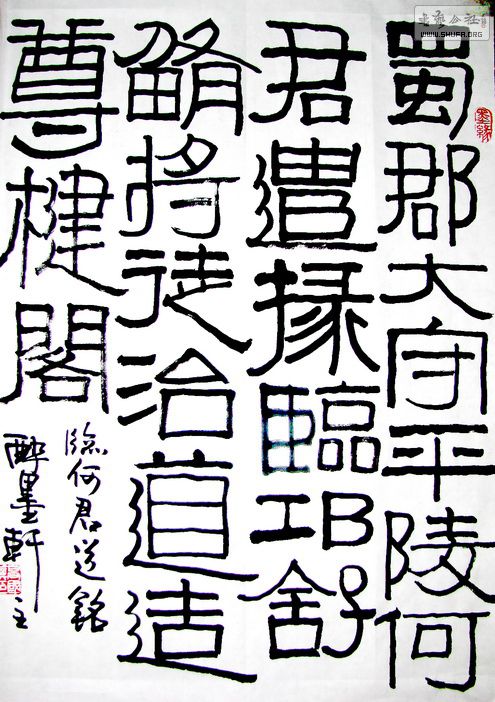 蜀郡大守平陵何
君遣掾臨邛舒
鮪將徒治道造
尊楗閣
臨何君道銘
醉墨軒主
墨緣
書藝公社
WWW.SHUFA.ORG